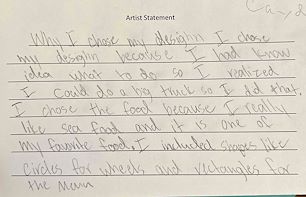 Artist Statement
Why I chose my desighn I chose
my desighn because I had know
idea what to do so I realized
I could do a big truck so I did that.
I chose the food because I really
like sea food and it is one of
my favorite food. I included shapes like
circles for wheels and rectangles for
the menu